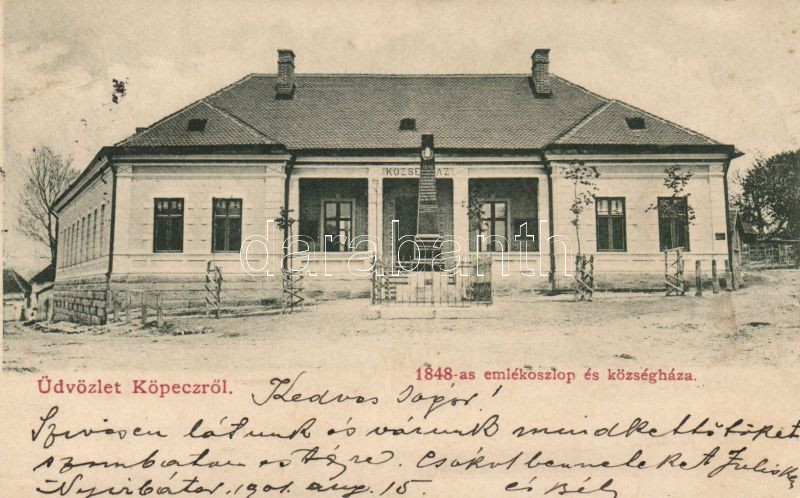 KÖZSÉGHÁZ
darabanth
Üdvözlet Köpeczről.
1848-as emlékoszlop és községháza.
Kedves Sógor!
Szivesen látunk és várunk mindkettőtöket
szombaton estére. Csókol benneteket Juliska
Nyirbátor, 1901. aug. 15. és Béla